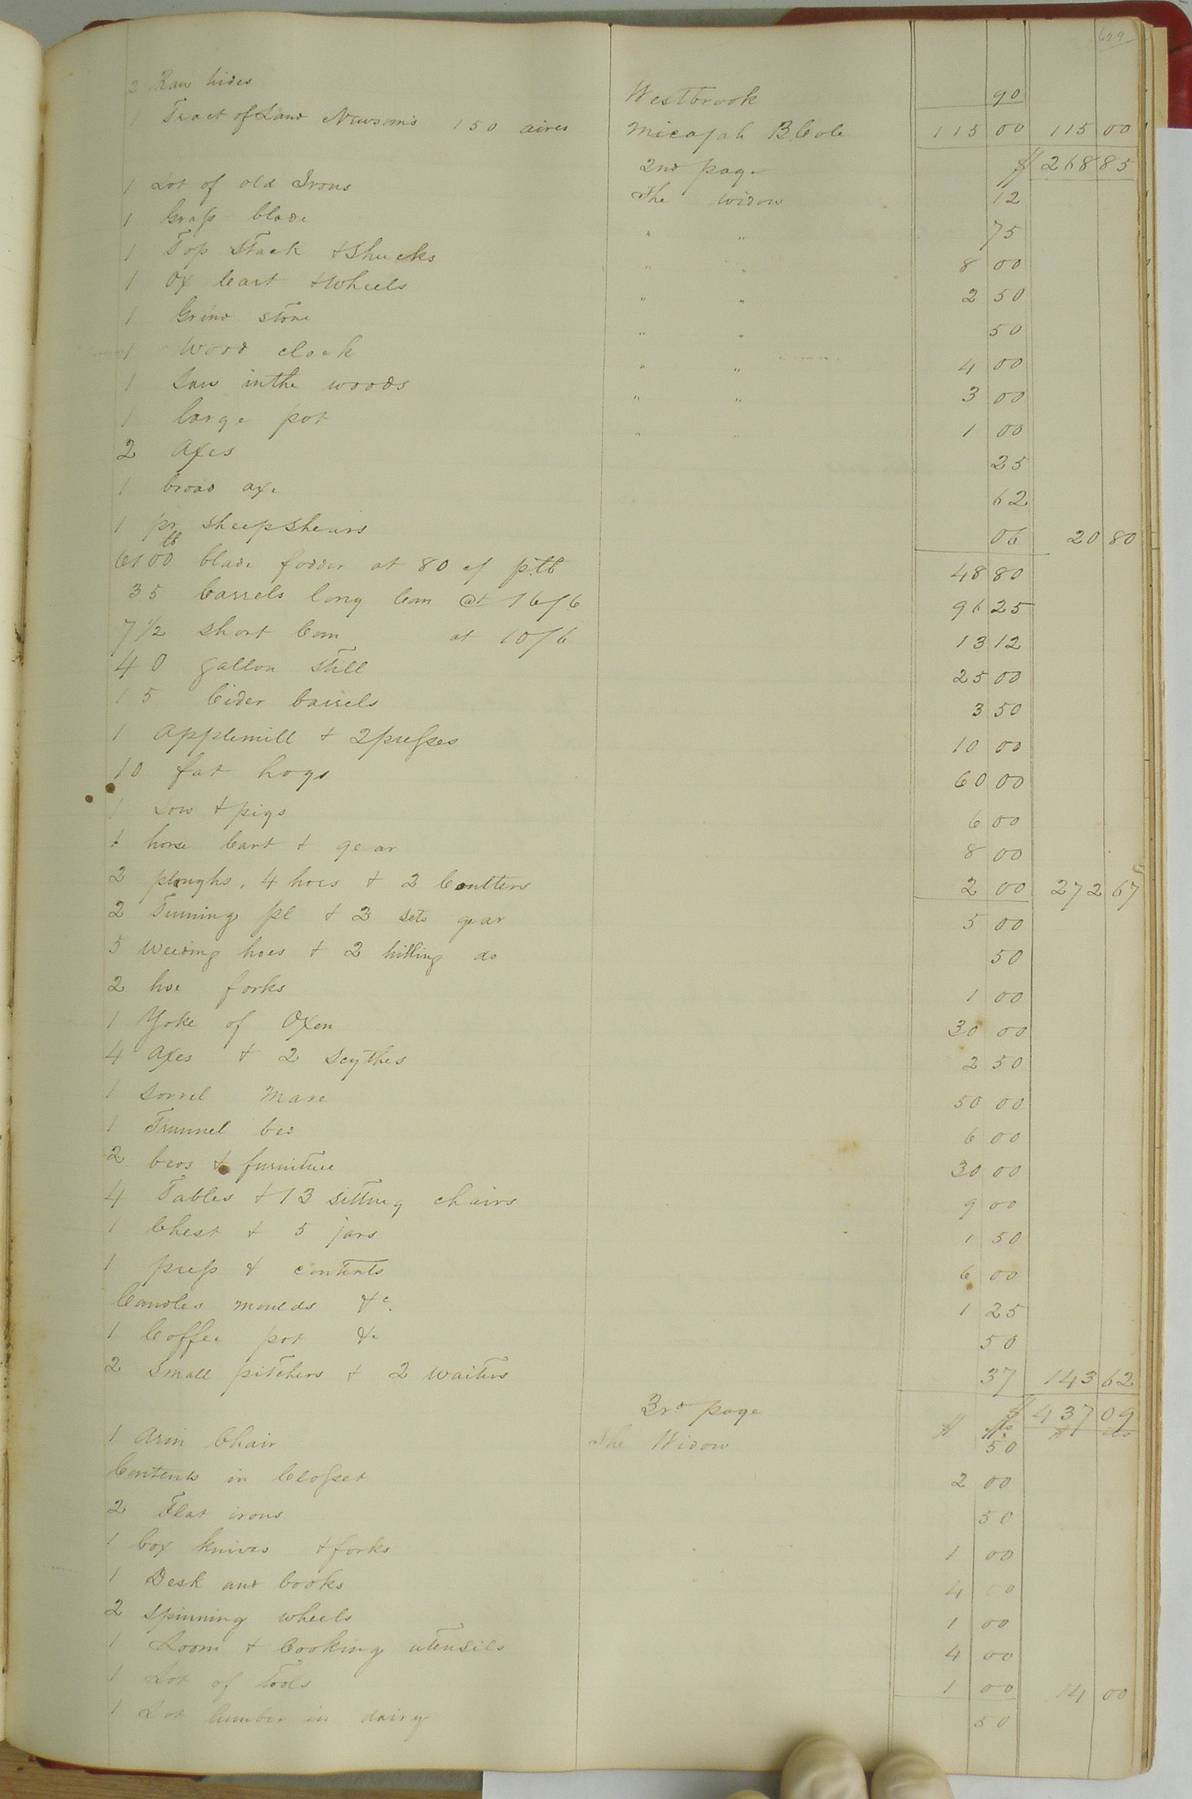 629
2 Raw hides Westbrook 90
1 Tract of Land Newsom's 150 acres Micajah B Cole 115 00 115 00
2nd page $ 268 85
1 Lot of old Irons The Widow 12
1 Grass blade " " 75
1 Top Stack & Shucks " " 8 00
1 Ox Cart & Wheels " " 2 50
1 Grind stone " " 50
1 Wood clock " " 4 00
1 Saw in the woods " " 3 00
1 large pot " " 1 00
2 Axes 25
1 broad axe 62
1 pr sheep shears 06 20 80
6100 lb blade fodder at 80 cf p. lb 48 80
35 Barrels long Corn @t 16/6 96 25
7 1/2 short Corn at 10/6 13 12
40 gallon Still 25 00
15 Cider barrels 3 50
1 Applemill & 2 presses 10 00
10 fat hogs 60 00
1 Sow & pigs 6 00
1 horse Cart & gear 8 00
2 ploughs, 4 hoes & 2 Coutters 2 00 272 67
2 Turning pl & 2 sets gear 5 00
5 weeding hoes & 2 hilling do 50
2 hoe forks 1 00
1 Yoke of Oxen 30 00
4 Axes & 2 Scythes 2 50
1 Sorrel Mare 50 00
1 Trunnel bed 6 00
2 beds & furniture 30 00
4 Tables & 13 sitting chairs 9 00
1 Chest & 5 jars 1 50
1 press & contents 6 00
Candles moulds &c. 1 25
1 Coffee pot &c 50
2 Small pitchers & 2 waiters 37 143 62
3rd page $ 437 09
$ cts $ cts
1 Arm Chair The Widow 50
Contents in Closset 2 00
2 Flat irons 50
1 box knives & forks 1 00
1 Desk and books 4 00
2 Spinning wheels 1 00
1 Loom & Cooking utensils 4 00
1 Lot of Tools 1 00 14 00
1 Lot lumber in dairy 50